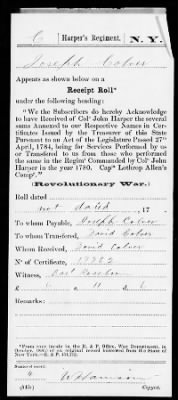 C | Harper's Regiment. | N. Y.
Joseph Colver
Appears as shown below on a
Receipt Roll*
under the following heading:
"We the Subscribers do hereby Acknowledge
to have Received of Col° John Harper the several
sums Annexed to our Respective Names in Cer-
tificate Issued by the Treasurer of this State
Pursuant to an Act of the Legislature Passed 27th
April, 1784, being for Services Performed by us
or Transfered to us from those who performed
the same in the Regim' Commanded by Col° John
Harper in the year 1780. Cap° Lothrop Allen's
Comp'."
Revolutionary War.
Roll dated
not dated, 17
To whom Payable, Joseph Colver
To whom Transfered, David Colver
Whom Received, David Colver
N° of Certificate,
Witness,
£
Remarks:
*From view books in the R. & P. Office, War Department, in
Copyist.